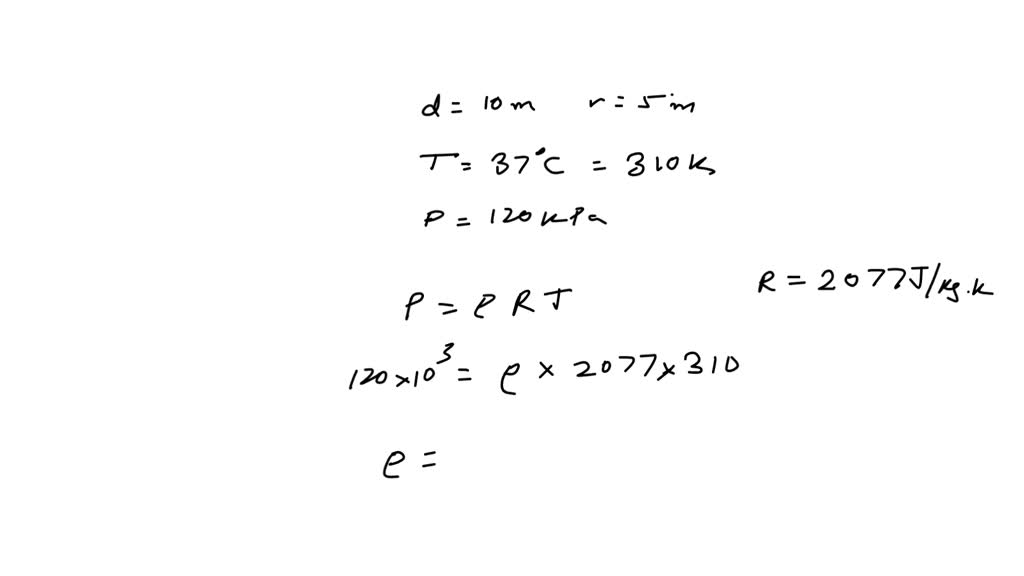 d = 10 m r = 5 m
T = 37°C = 310 K
P = 120 kPa
R = 2077 J/kg.K
P = ρ R T
120 × 10³ = ρ × 2077 × 310
ρ =